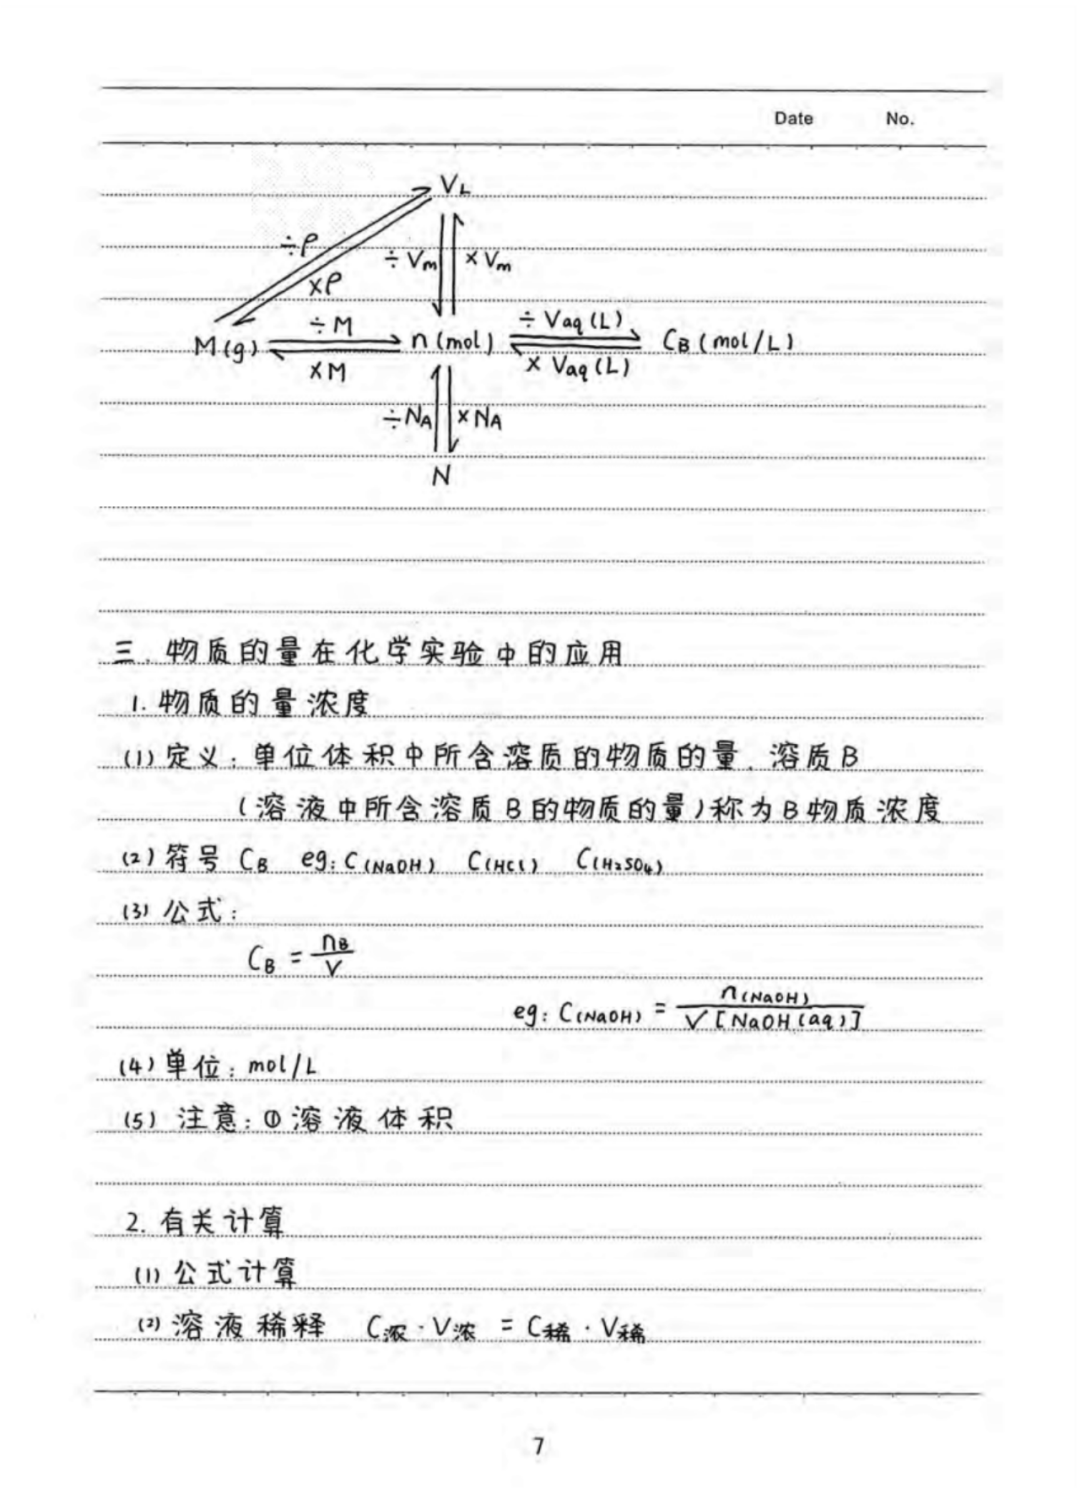 Date No.
V L
÷ρ ×ρ ÷Vm ×Vm
M(g) ÷M ×M n(mol) ÷Vaq(L) ×Vaq(L) CB(mol/L)
÷NA ×NA
N
三.物质的量在化学实验中的应用
1.物质的量浓度
(1)定义:单位体积中所含溶质的物质的量.溶质B
(溶液中所含溶质B的物质的量)称为B物质浓度
(2)符号 CB eg:C(NaOH) C(HCl) C(H2SO4)
(3)公式:
CB = nB/V
eg: C(NaOH) = n(NaOH)/V[NaOH(aq)]
(4)单位:mol/L
(5) 注意:①溶液体积
2.有关计算
(1)公式计算
(2)溶液稀释 C浓·V浓 = C稀·V稀
7